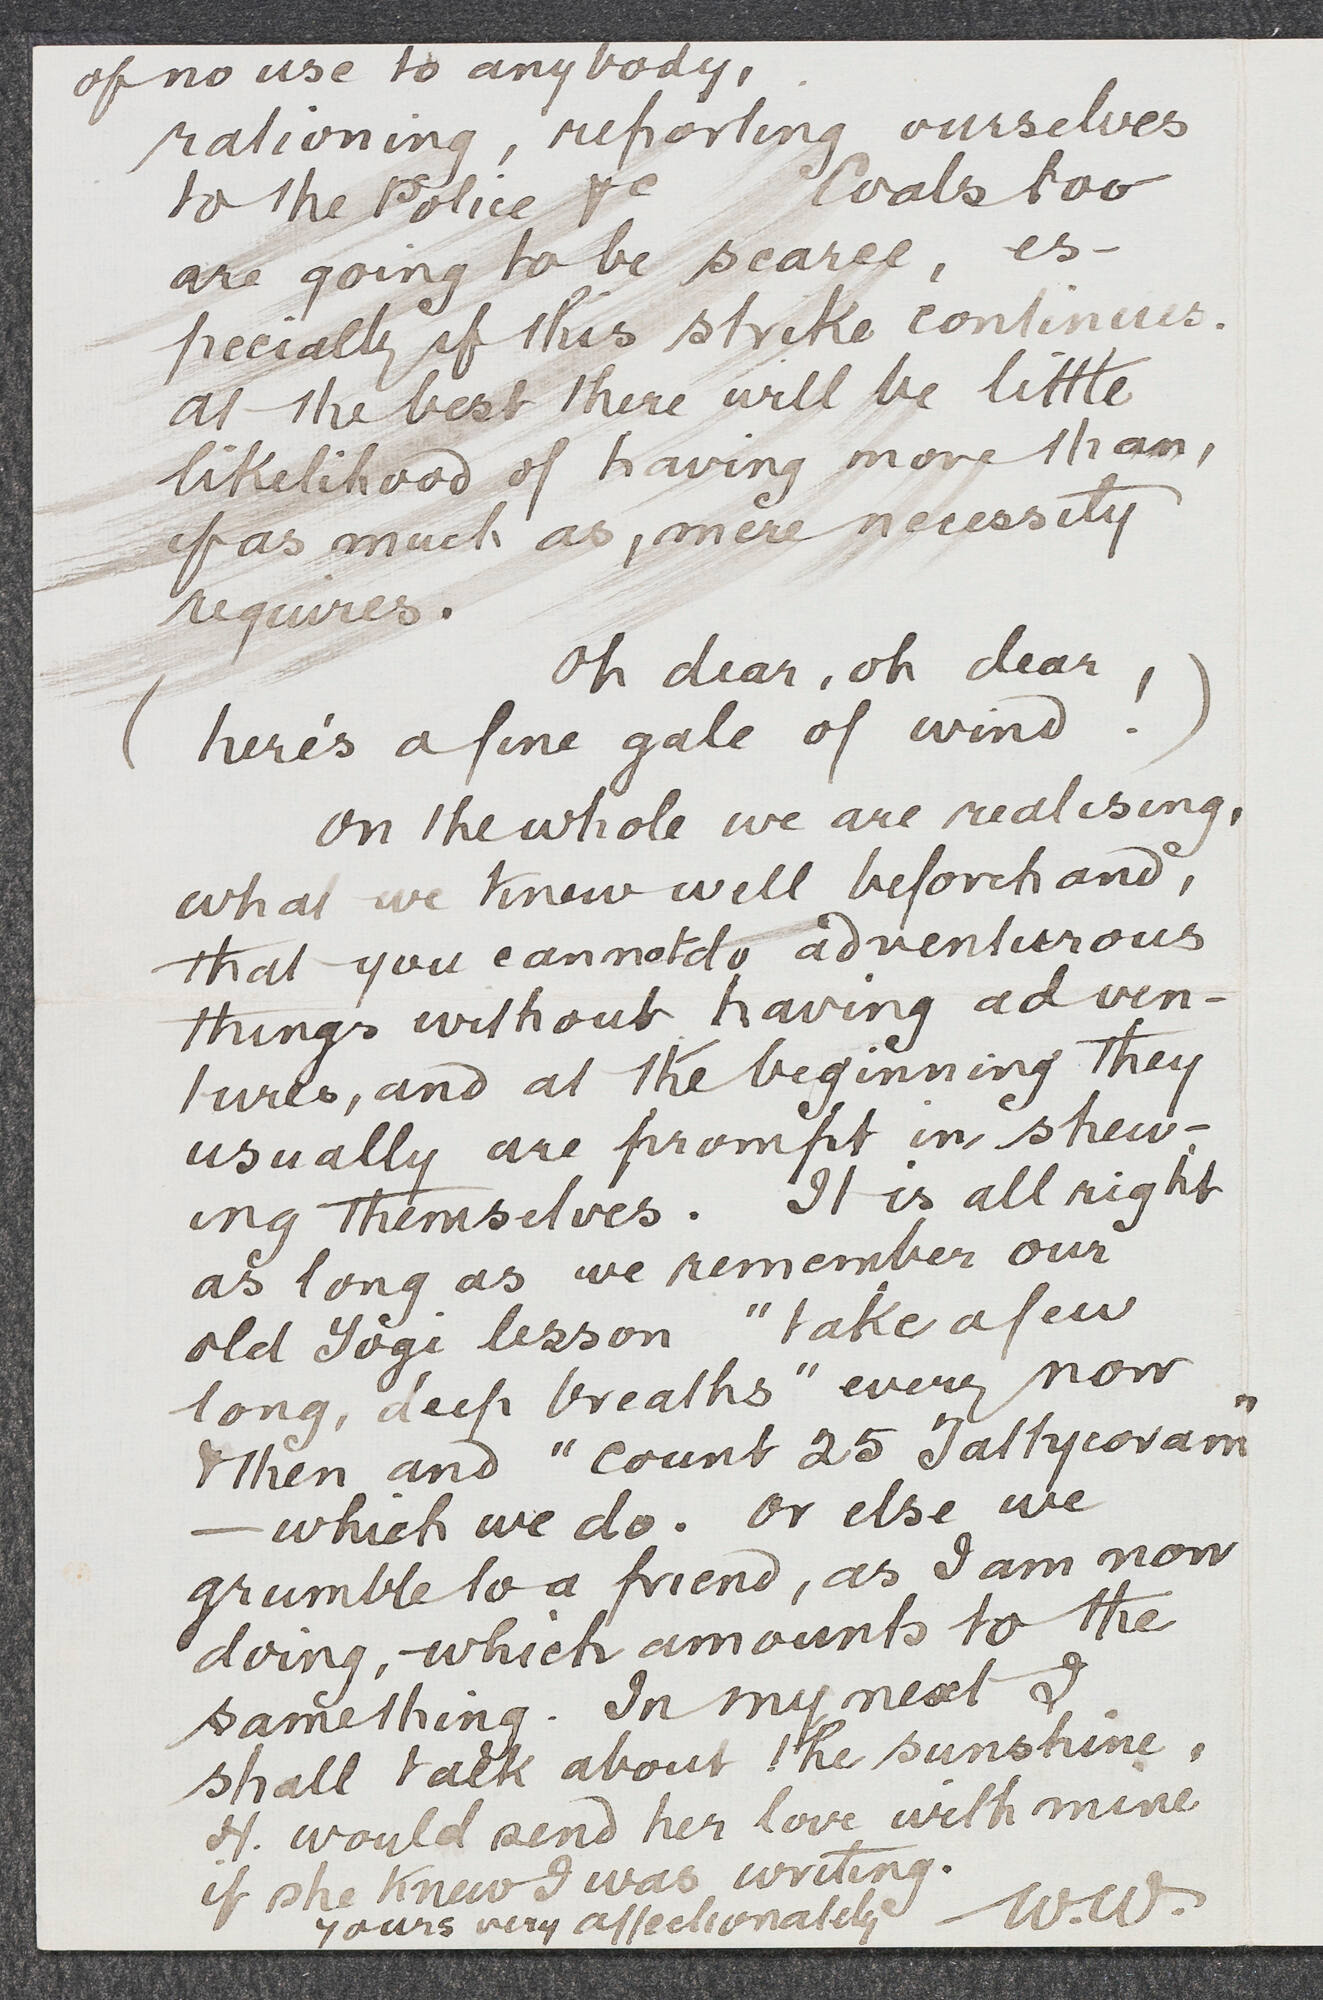 of no use to anybody,
rationing, reporting ourselves
to the Police &c Coals too
are going to be scarce, es-
pecially if this strike continues.
at the best there will be little
likelihood of having more than,
if as much as, mere necessity
requires.
Oh dear, oh dear,
(here's a fine gale of wind!)
On the whole we are realising,
what we knew well beforehand,
that you cannot do adventurous
things without having adven-
tures, and at the beginning they
usually are prompt in shew-
ing themselves. It is all right
as long as we remember our
old Yôgi lesson "take a few
long, deep breaths" every now
& then and "count 25 Tattycoram"
—which we do. Or else we
grumble to a friend, as I am now
doing, which amounts to the
same thing. In my next I
shall talk about the sunshine,
H. would send her love with mine
if she knew I was writing.
yours very affectionately W.W.